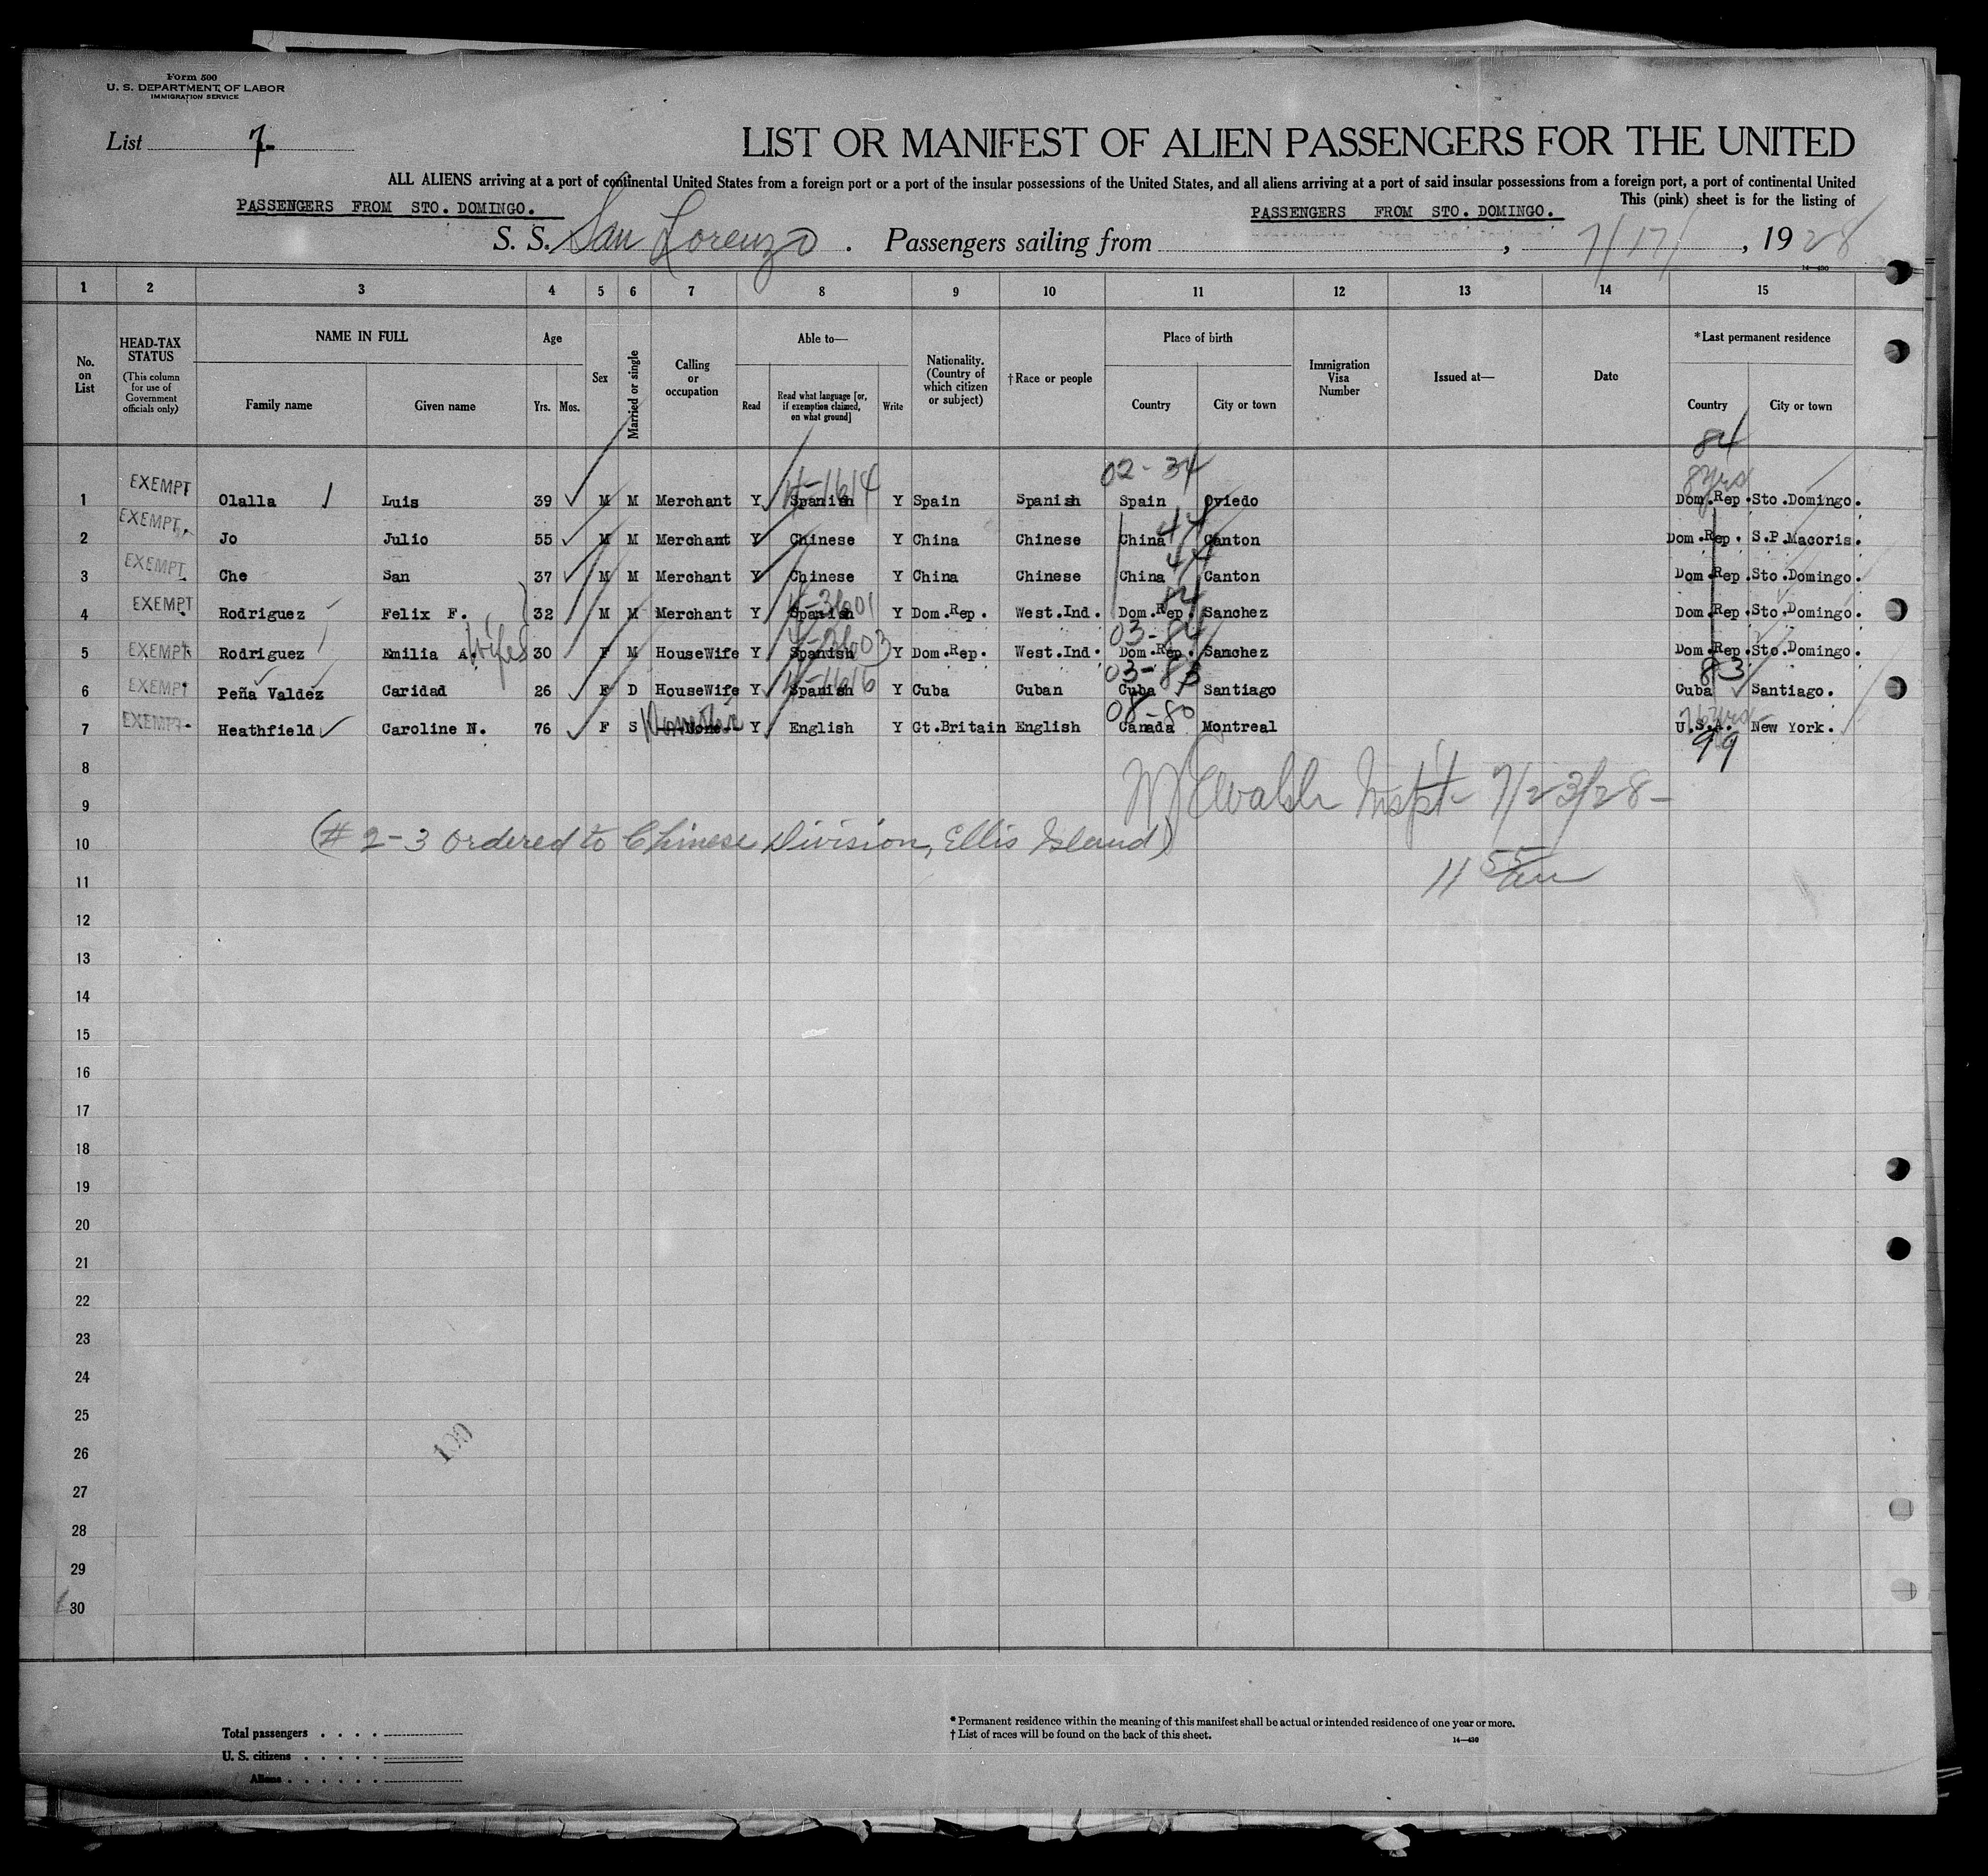 Form 500
U. S. DEPARTMENT OF LABOR
IMMIGRATION SERVICE
List 7-
LIST OR MANIFEST OF ALIEN PASSENGERS FOR THE UNITED
ALL ALIENS arriving at a port of continental United States from a foreign port or a port of the insular possessions of the United States, and all aliens arriving at a port of said insular possessions from a foreign port, a port of continental United
This (pink) sheet is for the listing of
PASSENGERS FROM STO. DOMINGO. PASSENGERS FROM STO. DOMINGO.
S. S. San Lorenzo . Passengers sailing from , 7/17/ , 1928
14—430
1 2 3 4 5 6 7 8 9 10 11 12 13 14 15
No. on List
HEAD-TAX STATUS
(This column for use of Government officials only)
NAME IN FULL
Family name Given name
Age
Yrs. Mos.
Sex
Married or single
Calling or occupation
Able to—
Read
Read what language [or, if exemption claimed, on what ground]
Write
Nationality. (Country of which citizen or subject)
†Race or people
Place of birth
Country City or town
Immigration Visa Number
Issued at—
Date
*Last permanent residence
Country City or town
84
02-34 8yrs
1 EXEMPT Olalla Luis 39 M M Merchant Y Spanish Y Spain Spanish Spain Oviedo Dom.Rep. Sto.Domingo.
44
2 EXEMPT. Jo Julio 55 M M Merchant Y Chinese Y China Chinese China Canton Dom.Rep. S.P.Macoris.
44
3 EXEMPT. Che San 37 M M Merchant Y Chinese Y China Chinese China Canton Dom.Rep. Sto.Domingo.
84
4 EXEMPT Rodriguez Felix F. 32 M M Merchant Y Spanish Y Dom.Rep. West.Ind. Dom.Rep. Sanchez Dom.Rep. Sto.Domingo.
03-84
5 EXEMPT Rodriguez Emilia A. wife 30 F M HouseWife Y Spanish Y Dom.Rep. West.Ind. Dom.Rep. Sanchez Dom.Rep. Sto.Domingo.
03-83 83
6 EXEMPT Peña Valdez Caridad 26 F D HouseWife Y Spanish Y Cuba Cuban Cuba Santiago Cuba Santiago.
08-80
7 EXEMPT- Heathfield Caroline N. 76 F S None Y English Y Gt.Britain English Canada Montreal U.S.A. New York.
99
8
Walsh Inspt- 7/23/28-
9
10 (# 2-3 Ordered to Chinese Division, Ellis Island)
11 55 am
11
12
13
14
15
16
17
18
19
20
21
22
23
24
25
26 100
27
28
29
30
Total passengers . . . .
U. S. citizens . . . . .
Aliens . . . . . .
* Permanent residence within the meaning of this manifest shall be actual or intended residence of one year or more.
† List of races will be found on the back of this sheet.
14—430